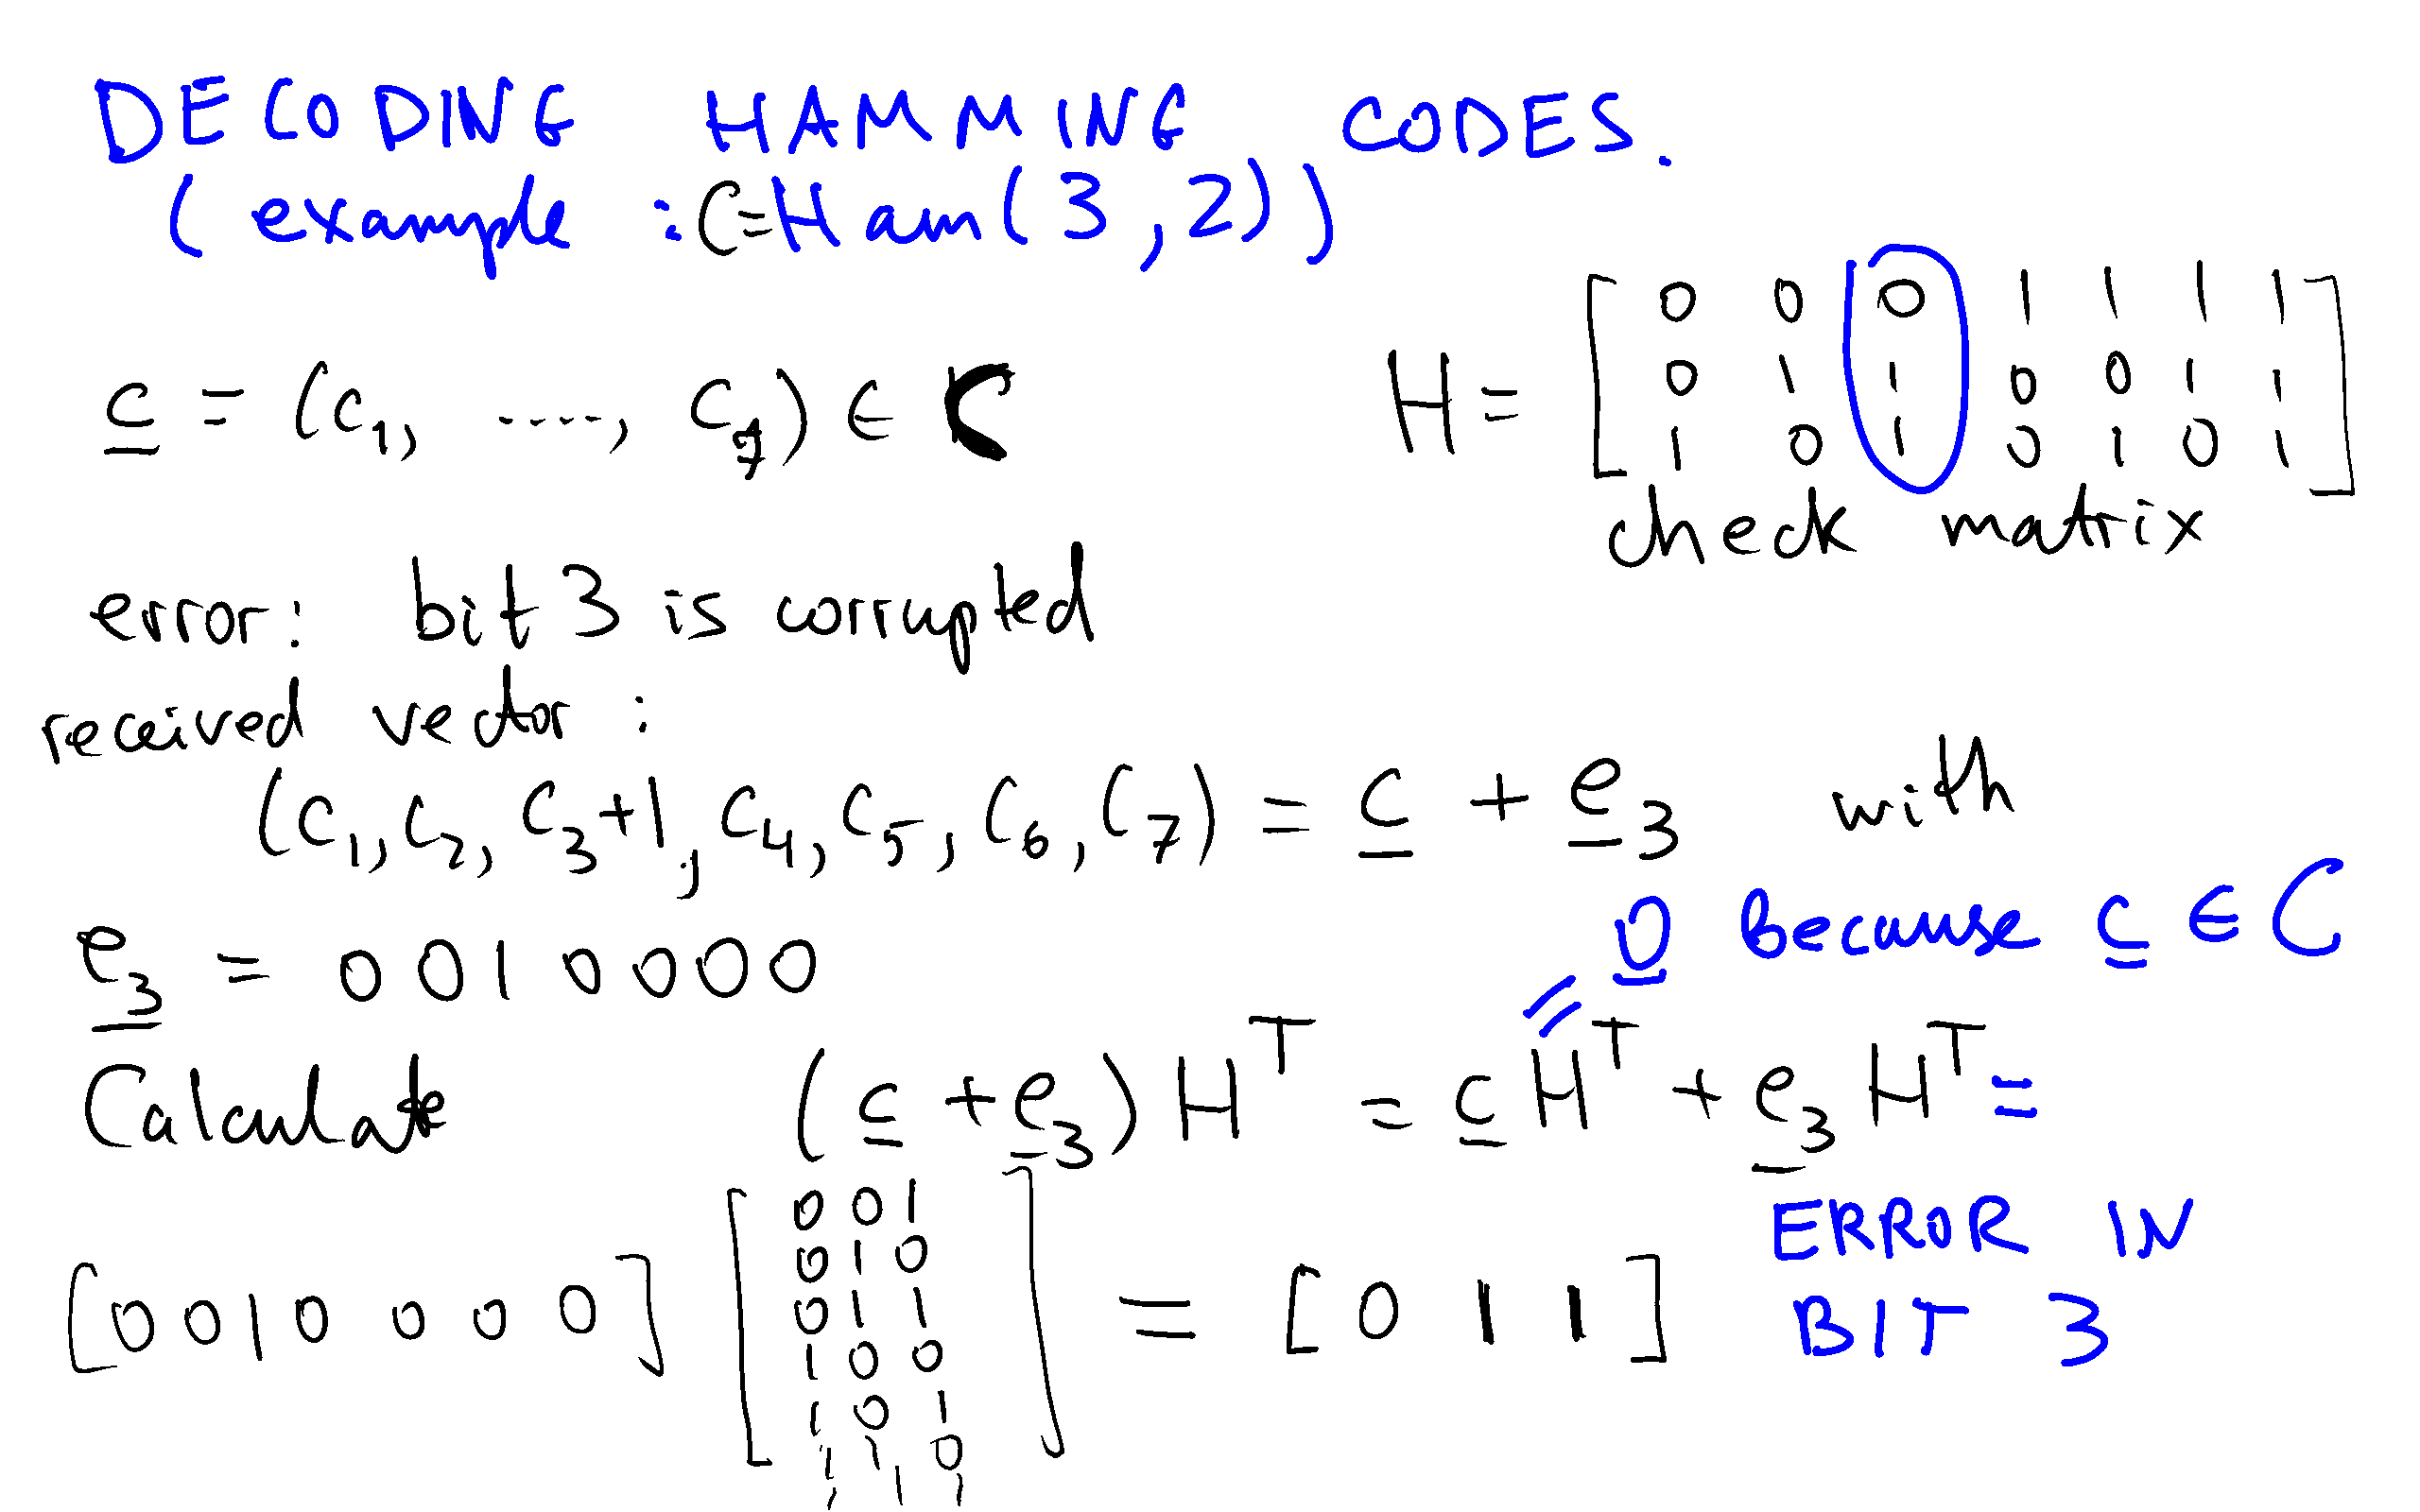 DECODING HAMMING CODES.
(example : C=Ham(3,2))
c = (c₁, ...., c₇) ∈ C
H = [ 0 0 0 1 1 1 1
0 1 1 0 0 1 1
1 0 1 0 1 0 1 ]
check matrix
error: bit 3 is corrupted
received vector :
(c₁, c₂, c₃+1, c₄, c₅, c₆, c₇) = c + e₃ with
e₃ = 0010000
0 Because c ∈ C
=
Calculate (c + e₃) Hᵀ = c Hᵀ + e₃ Hᵀ =
[0010 0 0 0] [ 0 0 1
0 1 0
0 1 1
1 0 0
1 0 1
1 1 0
1 1 1 ] = [0 1 1]
ERROR IN
BIT 3